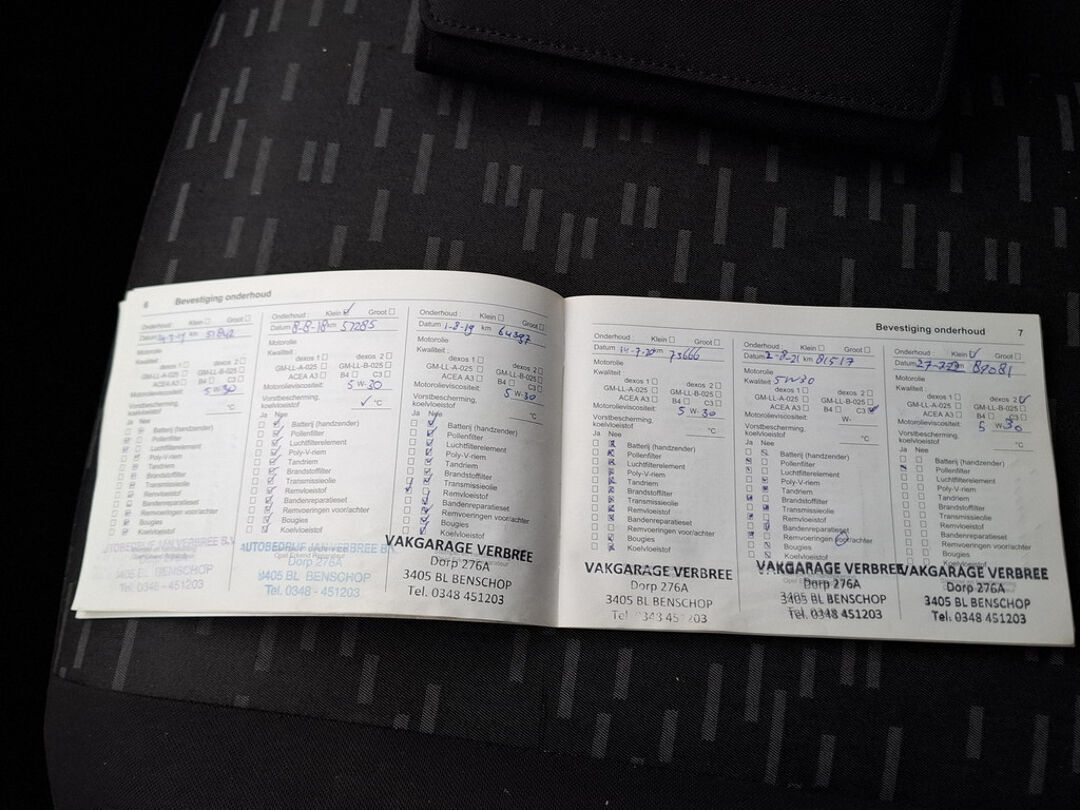 6 Bevestiging onderhoud
Onderhoud: Klein Groot
Datum km 51842
Motorolie
Kwaliteit: dexos 1 dexos 2
GM-LL-A-025 GM-LL-B-025
ACEA A3 B4 C3
Motorolieviscositeit: 5 W-30
Vorstbescherming, koelvloeistof °C
Ja Nee
Batterij (handzender)
Pollenfilter
Luchtfilterelement
Poly-V-riem
Tandriem
Brandstoffilter
Transmissieolie
Remvloeistof
Bandenreparatieset
Remvoeringen voor/achter
Bougies
Koelvloeistof
AUTOBEDRIJF VAN VERBREE B.V.
Dorp 276A
3405 BL BENSCHOP
Tel. 0348 - 451203
Onderhoud: Klein Groot
Datum 8-8-18 km 57285
Motorolie
Kwaliteit: dexos 1 dexos 2
GM-LL-A-025 GM-LL-B-025
ACEA A3 B4 C3
Motorolieviscositeit: 5 W-30
Vorstbescherming, koelvloeistof °C
Ja Nee
Batterij (handzender)
Pollenfilter
Luchtfilterelement
Poly-V-riem
Tandriem
Brandstoffilter
Transmissieolie
Remvloeistof
Bandenreparatieset
Remvoeringen voor/achter
Bougies
Koelvloeistof
Dorp 276A
3405 BL BENSCHOP
Tel. 0348 - 451203
Onderhoud: Klein Groot
Datum 1-8-19 km 64397
Motorolie
Kwaliteit: dexos 1 dexos 2
GM-LL-A-025 GM-LL-B-025
ACEA A3 B4 C3
Motorolieviscositeit: 5 W-30
Vorstbescherming, koelvloeistof °C
Ja Nee
Batterij (handzender)
Pollenfilter
Luchtfilterelement
Poly-V-riem
Tandriem
Brandstoffilter
Transmissieolie
Remvloeistof
Bandenreparatieset
Remvoeringen voor/achter
Bougies
Koelvloeistof
VAKGARAGE VERBREE
Dorp 276A
3405 BL BENSCHOP
Tel. 0348 451203
Bevestiging onderhoud 7
Onderhoud: Klein Groot
Datum 14-7-20 km 73666
Motorolie
Kwaliteit: dexos 1 dexos 2
GM-LL-A-025 GM-LL-B-025
ACEA A3 B4 C3
Motorolieviscositeit: 5 W-30
Vorstbescherming, koelvloeistof °C
Ja Nee
Batterij (handzender)
Pollenfilter
Luchtfilterelement
Poly-V-riem
Tandriem
Brandstoffilter
Transmissieolie
Remvloeistof
Bandenreparatieset
Remvoeringen voor/achter
Bougies
Koelvloeistof
VAKGARAGE VERBREE
Dorp 276A
3405 BL BENSCHOP
Onderhoud: Klein Groot
Datum 2-8-21 km 81517
Motorolie
Kwaliteit: 5W30
dexos 1 dexos 2
GM-LL-A-025 GM-LL-B-025
ACEA A3 B4 C3
Motorolieviscositeit: W-
Vorstbescherming, koelvloeistof °C
Ja Nee
Batterij (handzender)
Pollenfilter
Luchtfilterelement
Poly-V-riem
Tandriem
Brandstoffilter
Transmissieolie
Remvloeistof
Bandenreparatieset
Remvoeringen voor/achter
Bougies
Koelvloeistof
VAKGARAGE VERBREE
Dorp 276A
3405 BL BENSCHOP
Tel. 0348 451203
Onderhoud: Klein Groot
Datum km
Motorolie
Kwaliteit: dexos 1 dexos 2
GM-LL-A-025 GM-LL-B-025
ACEA A3 B4 C3
Motorolieviscositeit: 5 W-30
Vorstbescherming, koelvloeistof °C
Ja Nee
Batterij (handzender)
Pollenfilter
Luchtfilterelement
Poly-V-riem
Tandriem
Brandstoffilter
Transmissieolie
Remvloeistof
Bandenreparatieset
Remvoeringen voor/achter
Bougies
VAKGARAGE VERBREE
Dorp 276A
3405 BL BENSCHOP
Tel. 0348 451203